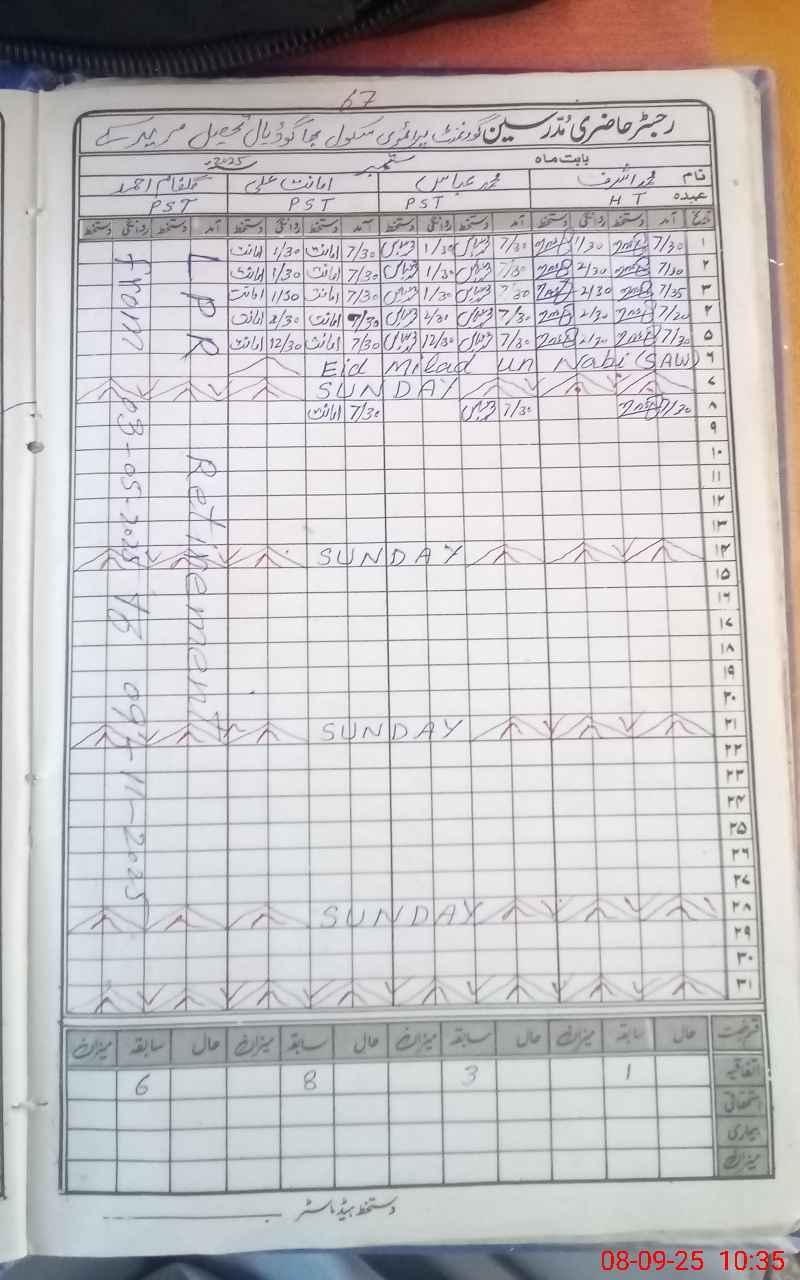 67
رجسٹر حاضری مُدرسین گورنمنٹ پرائمری سکول بھاگوڈیال تحصیل مریدکے
بابت ماہ ستمبر 2025ء
نام محمد اشرف محمد عباس امانت علی گلفام احمد
عہدہ H T PST PST PST
تاریخ آمد دستخط روانگی دستخط آمد دستخط روانگی دستخط آمد دستخط روانگی دستخط آمد دستخط روانگی دستخط
۱ 7/30 1/30 7/30 عباس 1/30 عباس 7/30 امانت 1/30 امانت
۲ 7/30 2/30 7/30 عباس 1/30 عباس 7/30 امانت 1/30 امانت
۳ 7/25 2/30 7/30 عباس 1/30 عباس 7/30 امانت 1/30 امانت
۴ 7/20 2/30 7/30 عباس 2/30 عباس 7/30 امانت 2/30 امانت
۵ 7/30 2/30 7/30 عباس 12/30 عباس 7/30 امانت 12/30 امانت
۶ Eid Milad un Nabi (SAW)
۷ SUNDAY
۸ 7/30 7/30 عباس 7/30 امانت
۹
۱۰
۱۱
۱۲
۱۳
۱۴ SUNDAY
۱۵
۱۶
۱۷
۱۸
۱۹
۲۰
۲۱ SUNDAY
۲۲
۲۳
۲۴
۲۵
۲۶
۲۷
۲۸ SUNDAY
۲۹
۳۰
۳۱
L P R Retirement
From 03-05-2025 To 09-11-2025
فرخصت حال سابقہ میزان حال سابقہ میزان حال سابقہ میزان حال سابقہ میزان
اتفاقیہ 1 3 8 6
استحقاقی
بیماری
میزان
دستخط ہیڈ ماسٹر
08-09-25 10:35